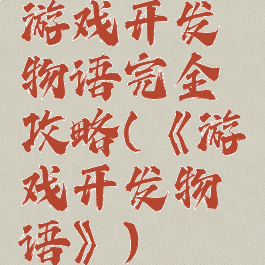 游戏开发
物语完全
攻略(《游
戏开发物
语》)